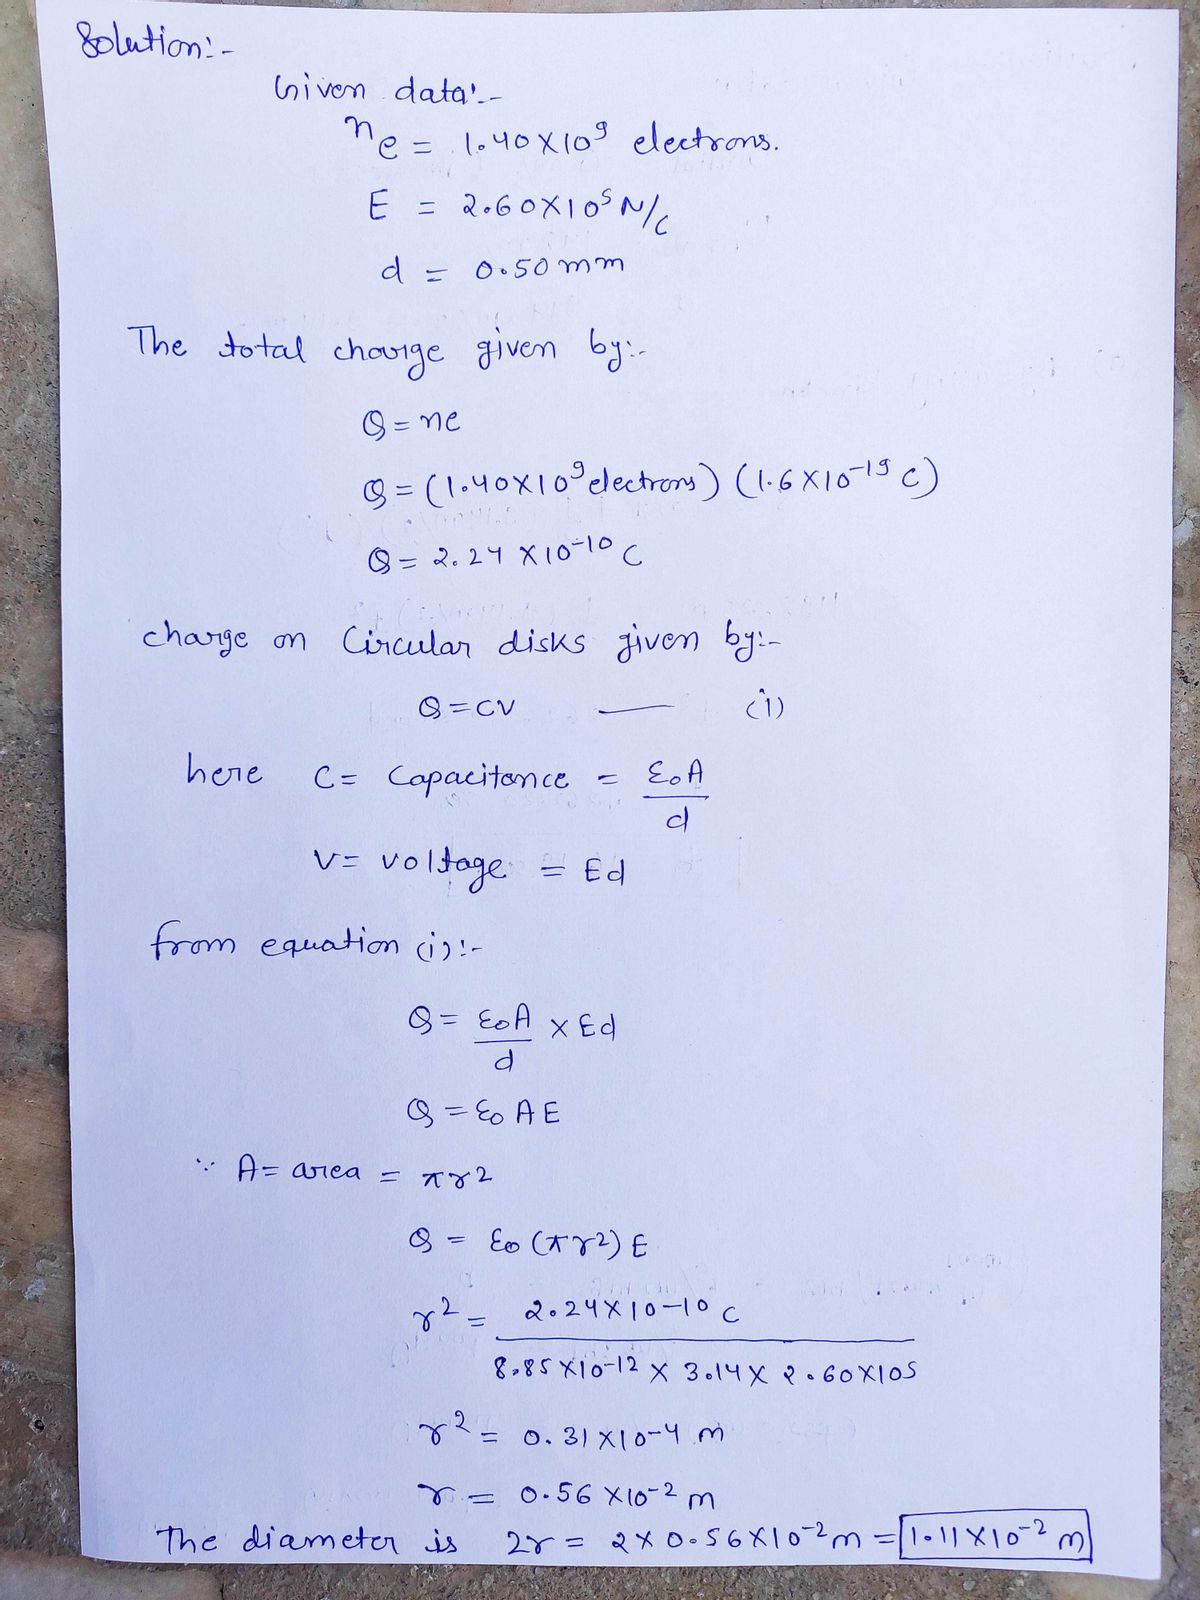 Solution:-
Given data:-
ne = 1.40X10⁹ electrons.
E = 2.60X10⁵ N/C
d = 0.50 mm
The total charge given by:-
Q = ne
Q = (1.40X10⁹ electrons) (1.6X10⁻¹⁹ C)
Q = 2.24 X10⁻¹⁰ C
charge on Circular disks given by:-
Q = CV — (i)
here C = Capacitance = ε₀A/d
V = voltage = Ed
from equation (i):-
Q = ε₀A/d X Ed
Q = ε₀ A E
∵ A = area = πr2
Q = ε₀ (πr²) E
r² = 2.24X10-10 C
8.85X10-12 X 3.14 X 2.60X105
r² = 0.31X10-4 m
r = 0.56 X10-2 m
The diameter is 2r = 2X0.56X10⁻² m = 1.11X10⁻² m